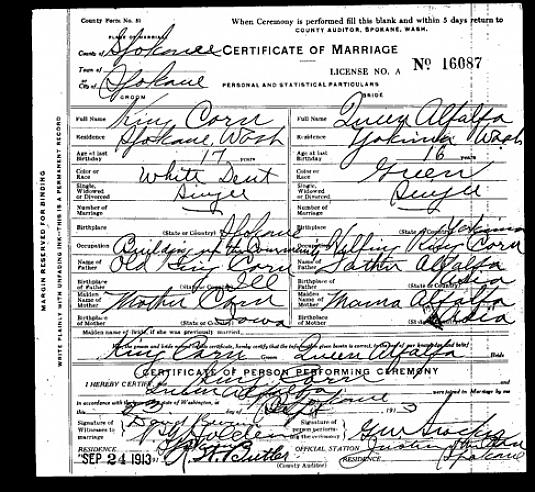 County Form No. 51
When Ceremony is performed fill this blank and within 5 days return to
COUNTY AUDITOR, SPOKANE, WASH.
PLACE OF MARRIAGE
County of Spokane CERTIFICATE OF MARRIAGE
Town of LICENSE NO. A No 16087
City of Spokane PERSONAL AND STATISTICAL PARTICULARS
GROOM BRIDE
Full Name King Corn Full Name Queen Alfalfa
Residence Spokane, Wash Residence Yakima Wash
Age at last Birthday 17 years Age at last Birthday 16 years
Color or Race White Dent Color or Race Green
Single, Widowed or Divorced Single Single, Widowed or Divorced Single
Number of Marriage Number of Marriage
Birthplace (State or Country) Spokane Birthplace (State or Country) Yakima
Occupation Building up the Community Occupation Helping King Corn
Name of Father Old King Corn Name of Father Father Alfalfa
Birthplace of Father (State or Country) Ill Birthplace of Father
Maiden Name of Mother Mother Corn Maiden Name of Mother Mama Alfalfa
Birthplace of Mother (State or Country) Iowa Birthplace of Mother
Maiden name of bride, if she was previously married
King Corn Groom Queen Alfalfa Bride
CERTIFICATE OF PERSON PERFORMING CEREMONY
I HEREBY CERTIFY, that King Corn and
Queen Alfalfa were joined in Marriage by me
in accordance with the laws of the State of Washington, at Spokane
this 23 day of Sept 1913
Signature of Witnesses to marriage
Signature of person performing the ceremony
RESIDENCE Spokane OFFICIAL STATION
SEP 24 1913 Butler RESIDENCE Spokane
(County Auditor)
MARGIN RESERVED FOR BINDING
WRITE PLAINLY WITH UNFADING INK—THIS IS A PERMANENT RECORD